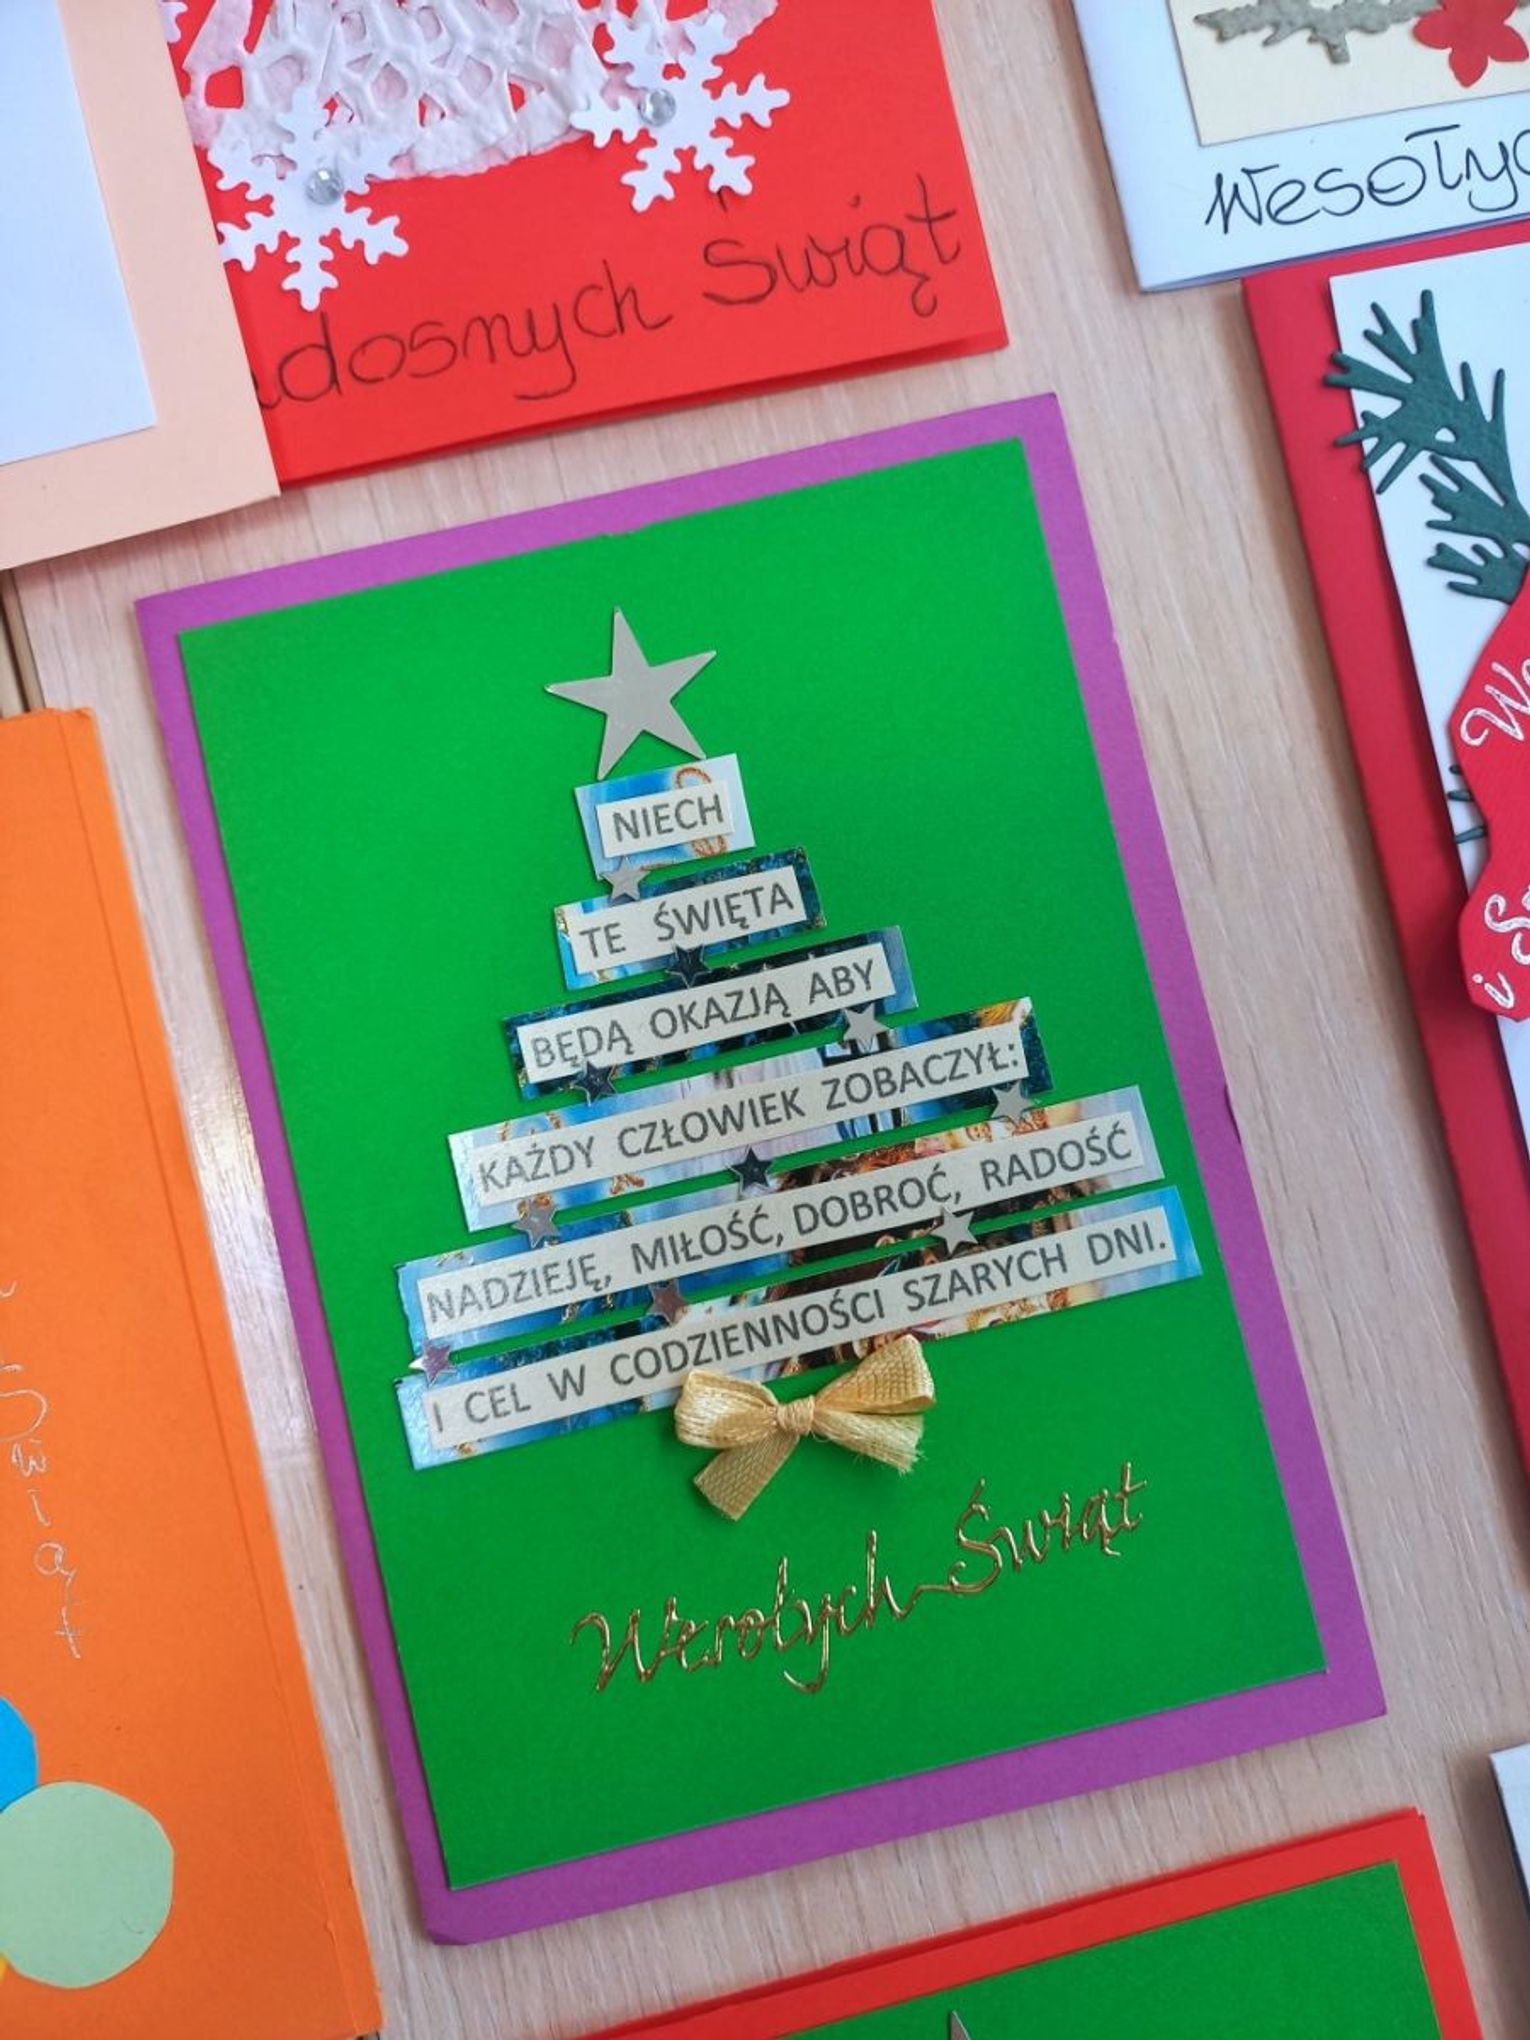 Świąt
Wesołyc
NIECH
TE ŚWIĘTA
BĘDĄ OKAZJĄ ABY
KAŻDY CZŁOWIEK ZOBACZYŁ:
NADZIEJĘ, MIŁOŚĆ, DOBROĆ, RADOŚĆ
I CEL W CODZIENNOŚCI SZARYCH DNI.
Wesołych Świąt